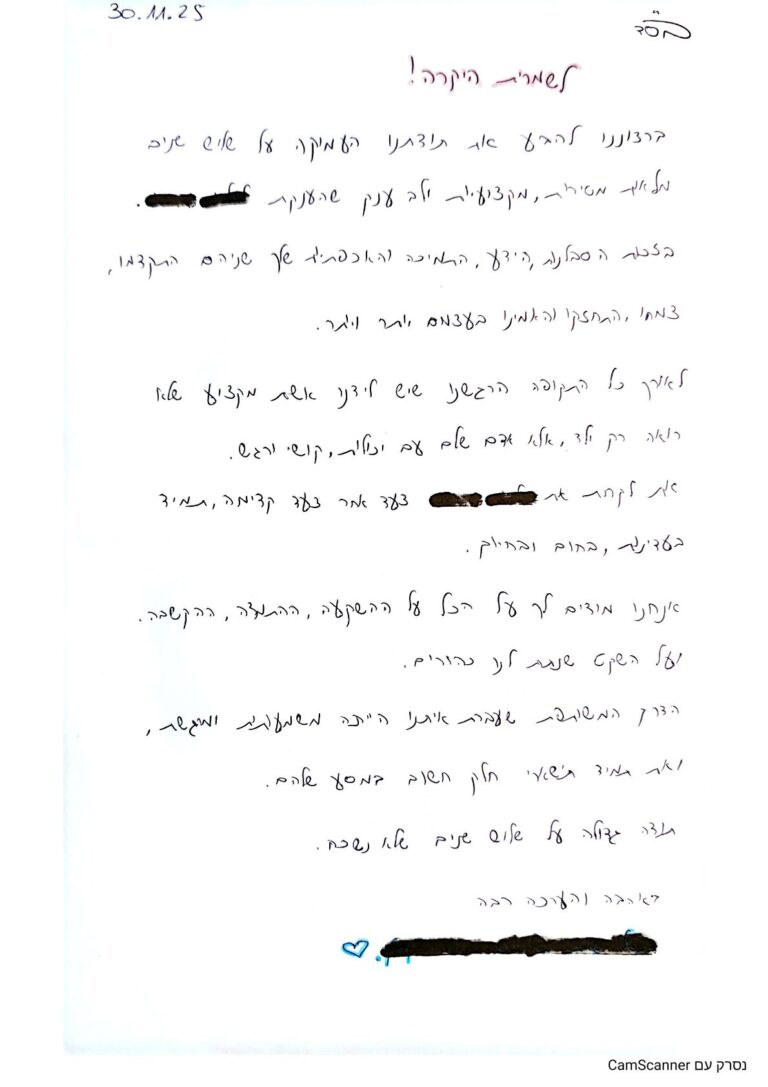 30.11.25
בס"ד
לשמרית היקרה!
ברצוננו להביע את תודתנו העמוקה על שלוש שנים
מלאות מסירות, מקצועיות ולב ענק שהענקת
בזכות הסבלנות, הידע, התמיכה והאכפתיות שלך שניהם התקדמו,
צמחו, התחזקו והאמינו בעצמם יותר ויותר.
לאורך כל התקופה הרגשנו שיש לידנו אשת מקצוע שלא
רואה רק ילד, אלא אדם שלם עם יכולות, קושי ורגש.
את לקחת את צעד אחר צעד קדימה, תמיד
בעדינות, בחום ובחיוך.
אנחנו מודים לך על הכל על ההשקעה, ההתמדה, ההקשבה.
ועל השקט שנתת לנו כהורים.
הדרך המשותפת שעברת איתנו הייתה משמעותית ומרגשת,
ואת תמיד תישארי חלק חשוב במסע שלהם.
תודה גדולה על שלוש שנים שלא נשכח.
באהבה והערכה רבה
נסרק עם CamScanner